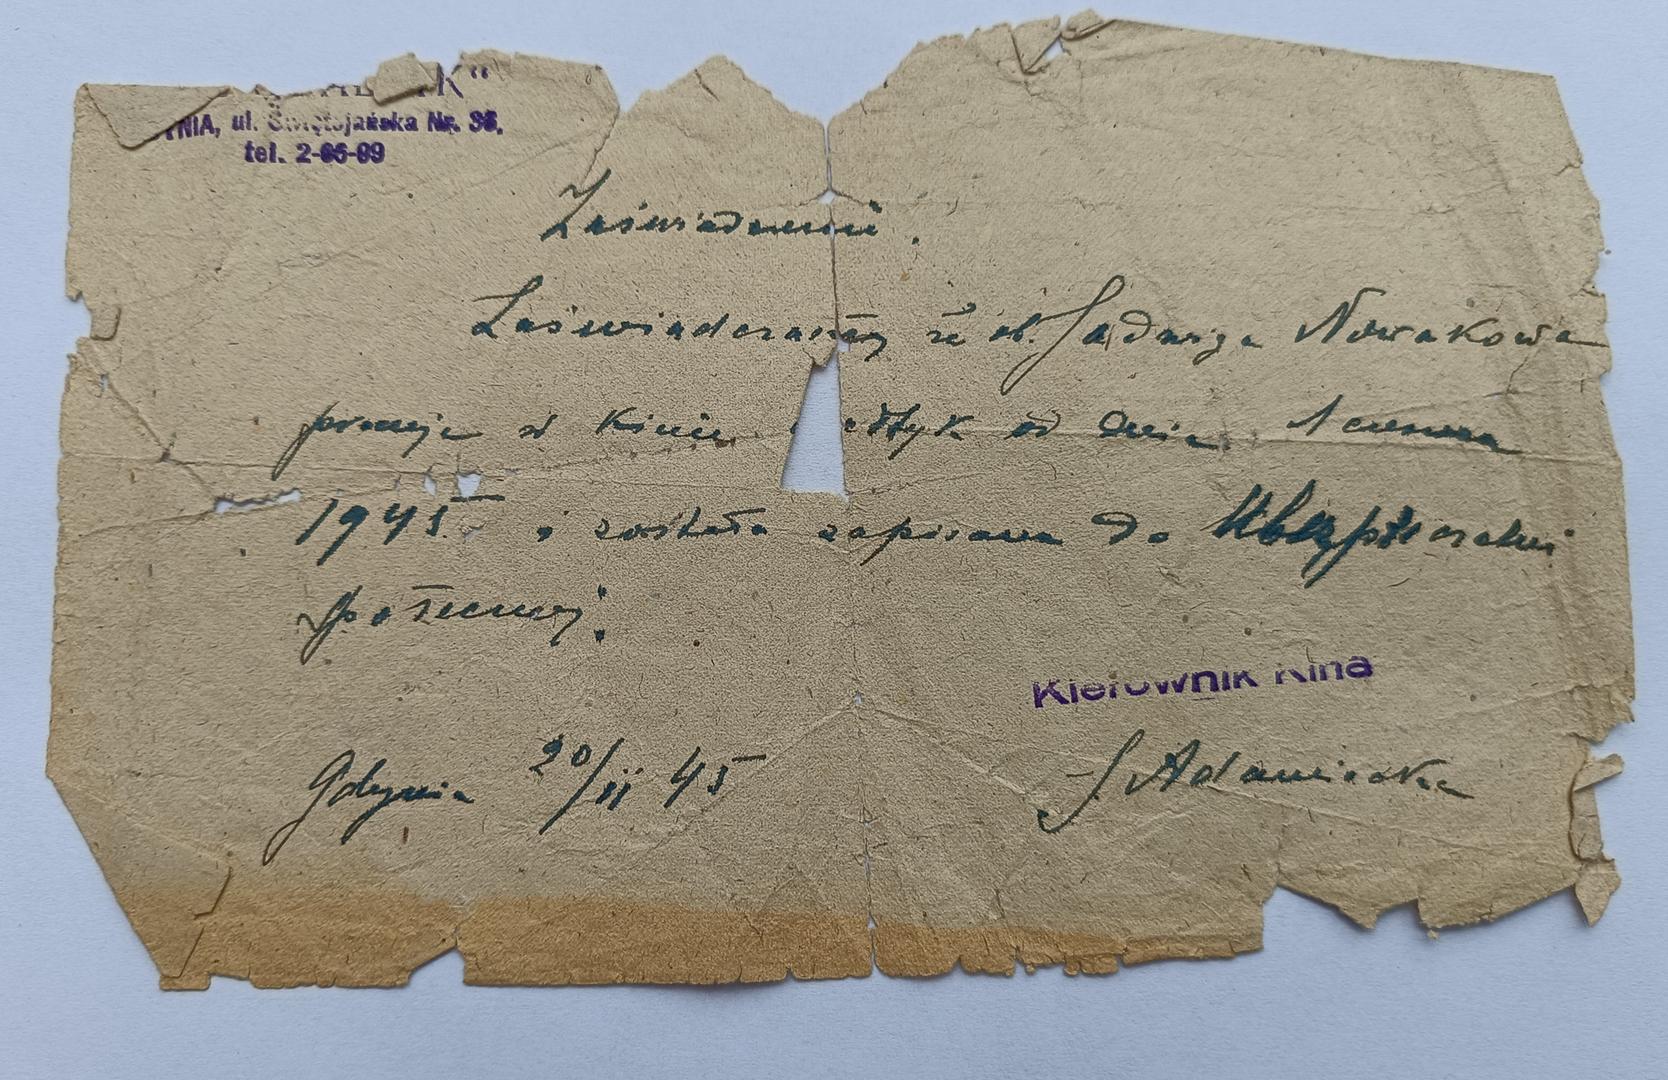 K"
YNIA, ul. Świętojańska Nr. 36,
tel. 2-65-69
Zaświadczenie.
Zaświadczamy że ob. Jadwiga Nowakowa
pracuje w kinie ałtyk od dnia 1 czerwca
1945 i została zapisana do Ubezpieczalni
Społecznej.
Kierownik Kina
Gdynia 20/ii 45